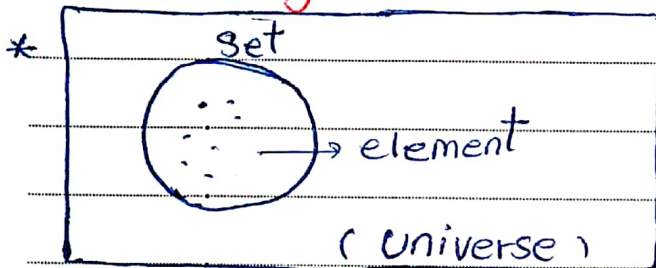 * set
→ element
( Universe )